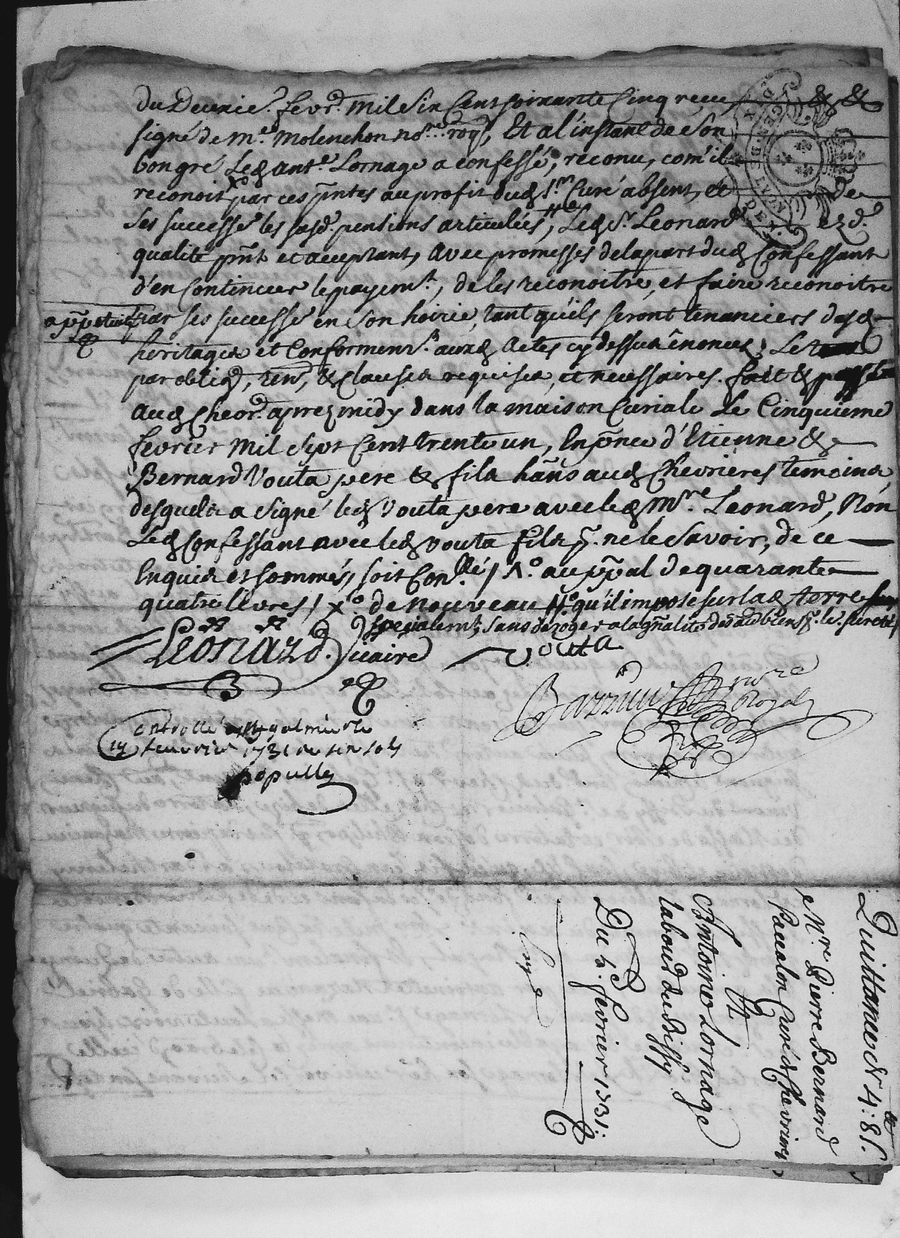 du deuxie. fevr. mil six cent soixante cinq receu &
signé de Me. Molenchon nore. roy, Et a l'instant de Son
bon gré Led. ant. Lornage a confessé, reconu, com'il
reconoit par ces pntes au profit dud. Sr. Curé absent, et de
Ses successe. les susd. pensions articulées, Led. Sr. Leonard ezd.
qualité pnt et aceptant, avec promesses de la part dud. Confessant
d'en Continuer le payemt., de les reconoitre, et faire reconoitre
par ses successe. en son hoirie, tant qu'ils seront tenanciers desd.
heritages et Conformemt. auxd. Actes cy dessus énoncés
par oblig., ren, & clauses requises, et necessaires. fait &
aud. Chevr. aprez midy dans la maison Curiale Le Cinquieme
fevrier mil sept Cent trente un, En pnce d'Etienne &
Bernard Vouta pere & fils hans aud. Chevrières temoins
desquels a signé led. Vouta pere avec led. Mre. Leonard, Non
Led. Confessant avec led. Vouta fils pr. ne le Savoir, de ce
Enquis et sommés, soit Conllé / au ppal de quarante
quatre livres / de nouveau qu'il impose sur lad. terre
specialemt. sans deroger a la gnalité de
Leonard. vicaire
Vouta
fevrier 1731
Quittance & 4: 8s.
Mre. Pierre Bernard
Curé de Chevrieres
Antoine Lornage
labour. de
Du 5. fevrier 1731.